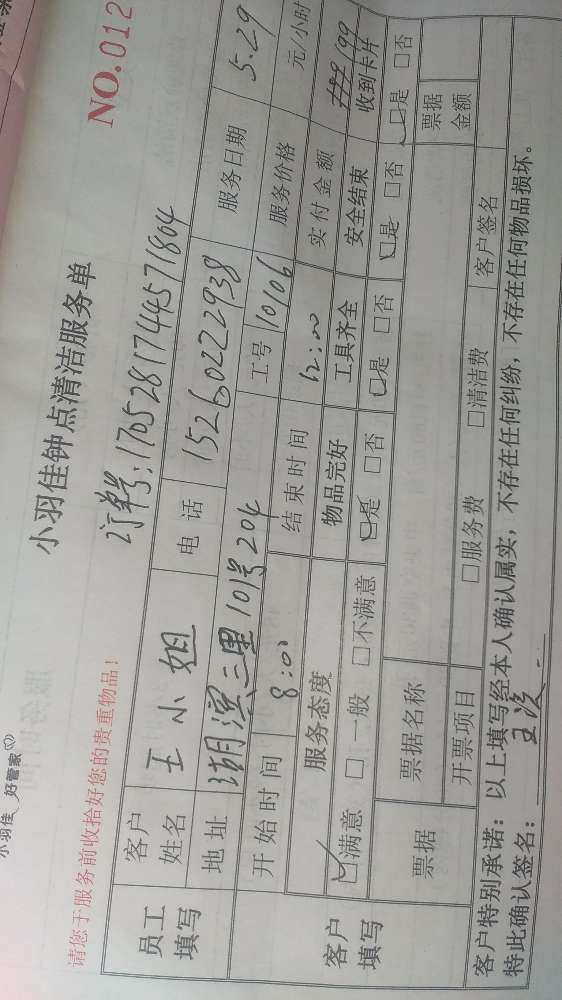 小羽佳 好管家
小羽佳钟点清洁服务单
NO.012
请您于服务前收拾好您的贵重物品！
订单号：1705281744571804
员工填写 客户姓名 王小姐 电话 15260222938 服务日期 5.29
地址 湖滨三里101号204 工号 10106 服务价格 元/小时
客户填写 开始时间 8:00 结束时间 12:00 实付金额 199
服务态度 物品完好 工具齐全 安全结束 收到卡片
☑满意 □一般 □不满意 ☑是 □否 ☑是 □否 ☑是 □否 ☑是 □否
票据 票据名称 票据金额
开票项目 □服务费 □清洁费 客户签名
客户特别承诺：以上填写经本人确认属实，不存在任何纠纷，不存在任何物品损坏。
特此确认签名：